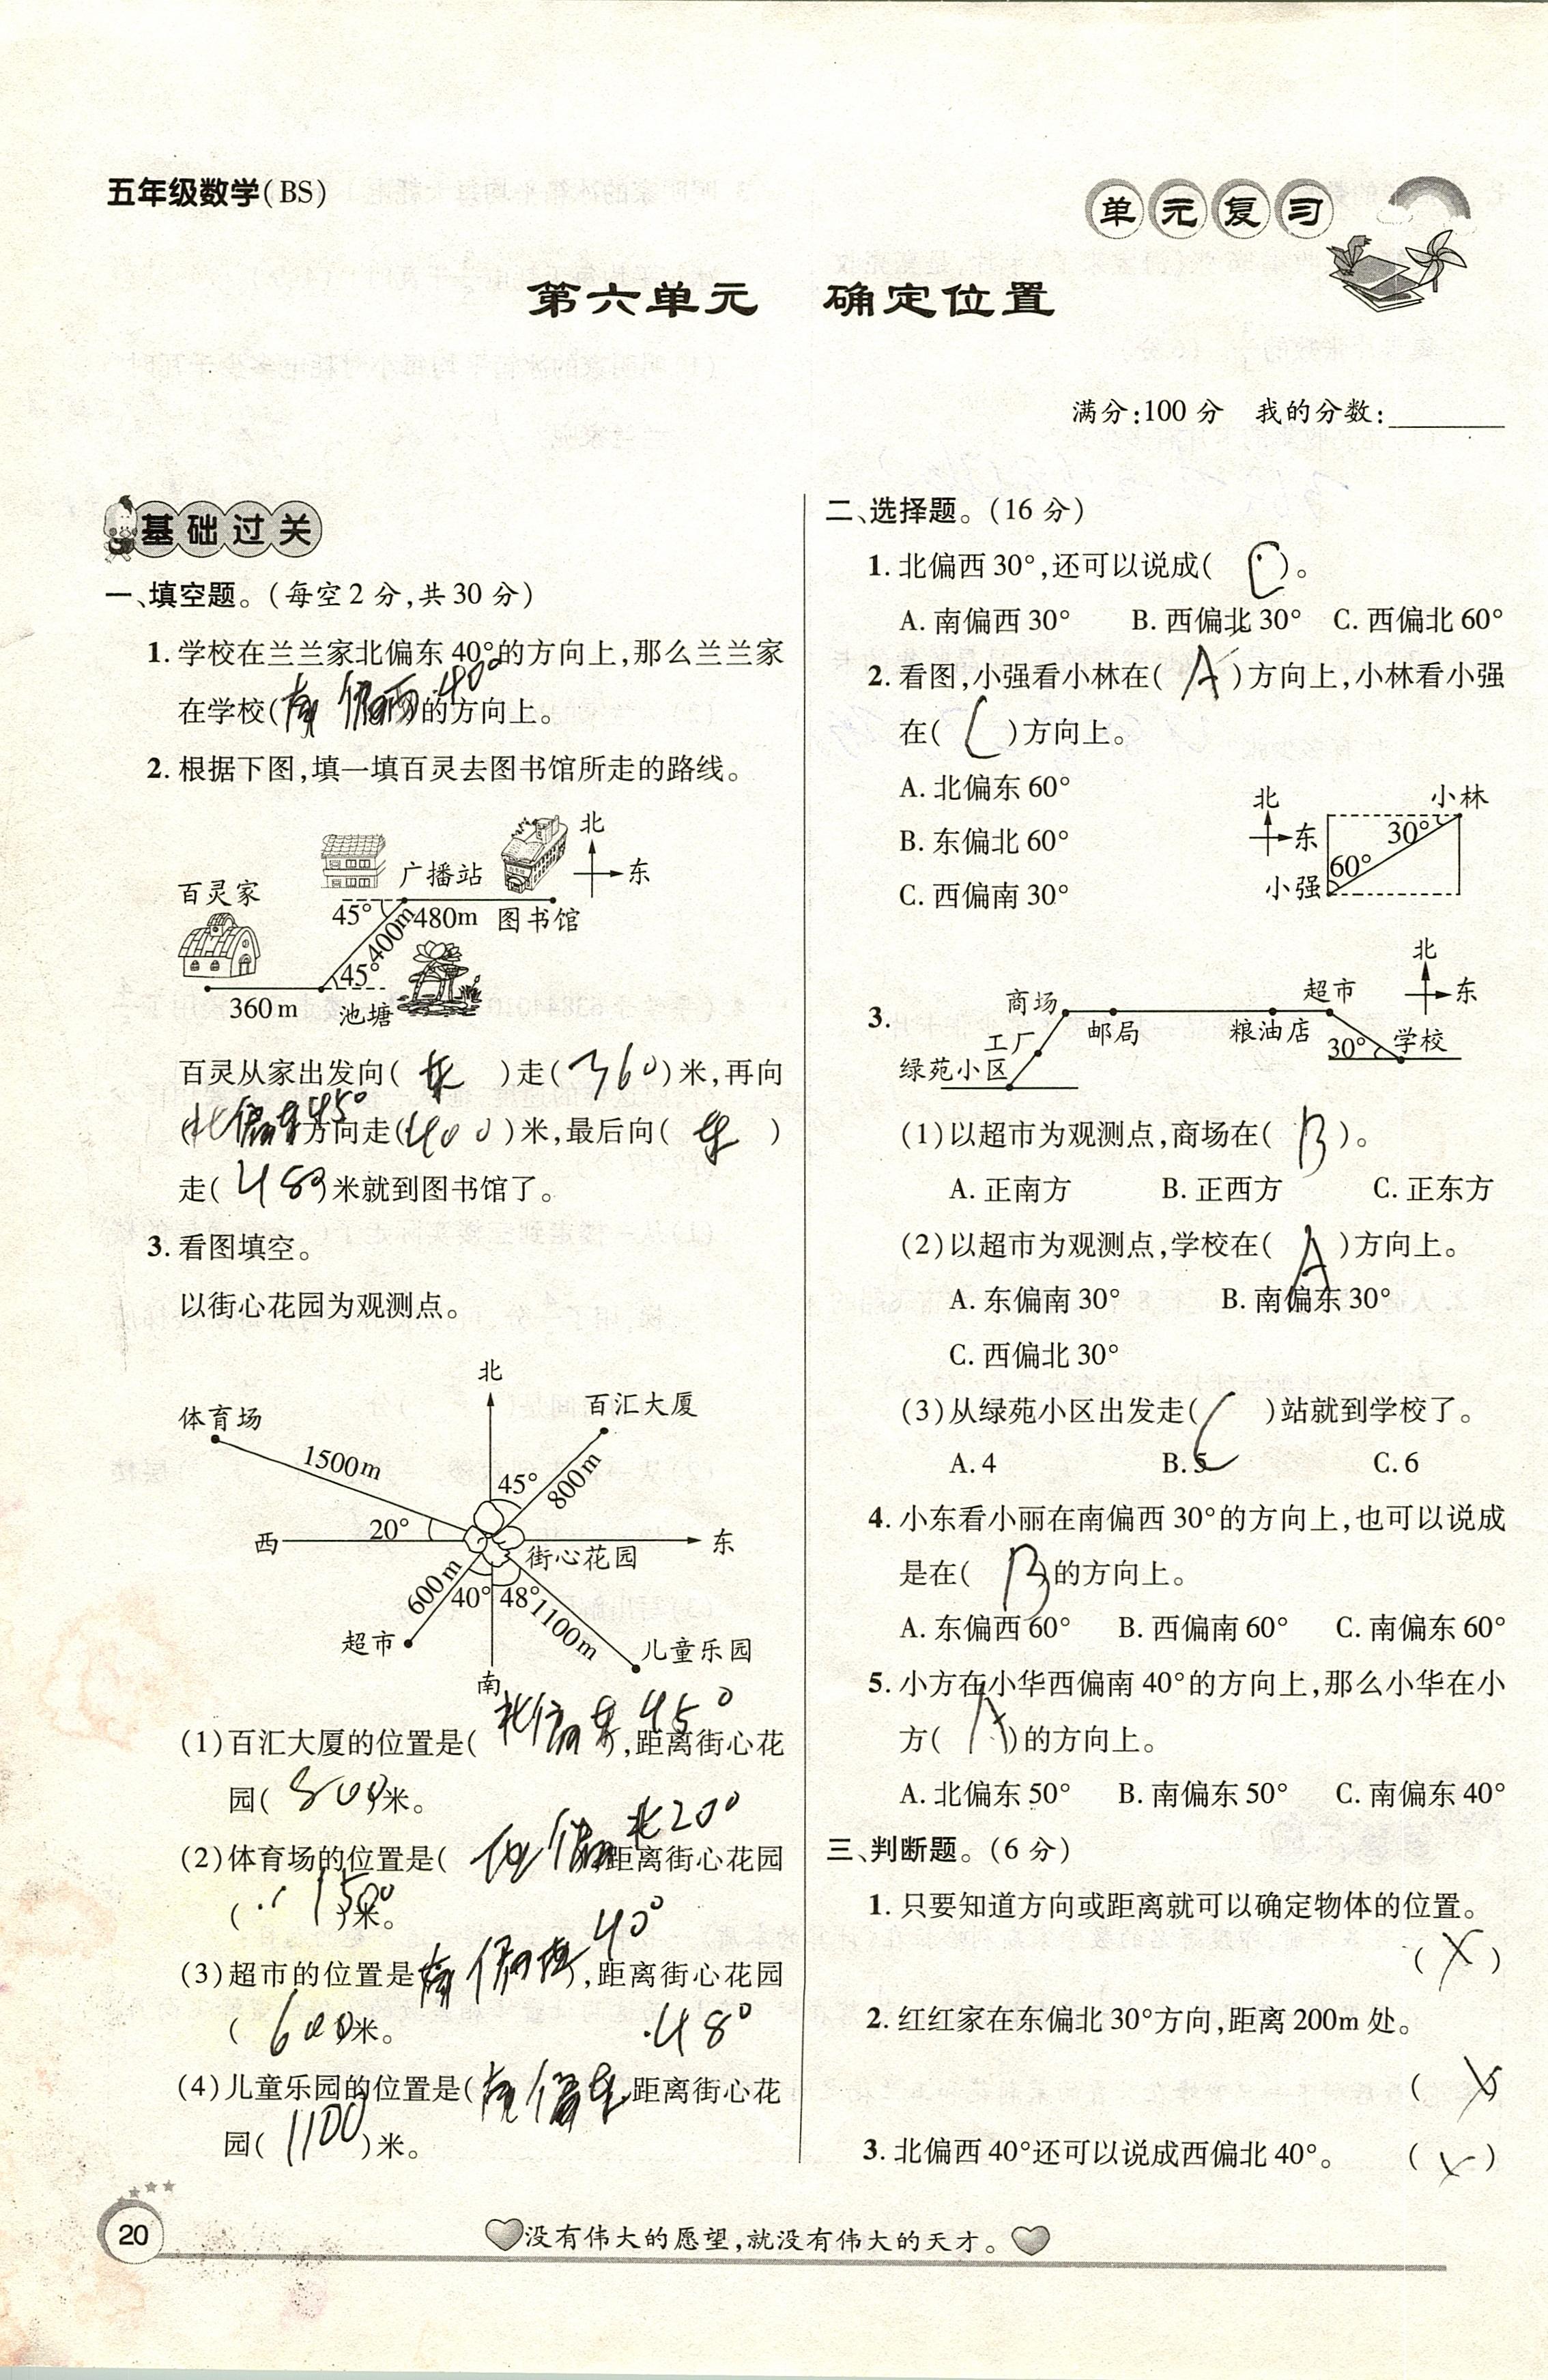 五年级数学(BS)
单元复习
第六单元 确定位置
满分:100分 我的分数:
基础过关
一、填空题。(每空2分,共30分)
1. 学校在兰兰家北偏东40°的方向上,那么兰兰家
在学校(南偏西40°)的方向上。
2. 根据下图,填一填百灵去图书馆所走的路线。
北
东
广播站
百灵家
45°
480m
图书馆
400m
45°
360m
池塘
百灵从家出发向(东)走(360)米,再向
(北偏东45°)方向走(400)米,最后向(东)
走(480)米就到图书馆了。
3. 看图填空。
以街心花园为观测点。
北
体育场
百汇大厦
1500m
45°
800m
20°
西
东
街心花园
600m
40°
48°
1100m
超市
儿童乐园
南
(1)百汇大厦的位置是(北偏东45°),距离街心花
园(800)米。
(2)体育场的位置是(西偏北20°),距离街心花园
(1500)米。
(3)超市的位置是(南偏西40°),距离街心花园
(600)米。
(4)儿童乐园的位置是(南偏东48°),距离街心花
园(1100)米。
二、选择题。(16分)
1. 北偏西30°,还可以说成(C)。
A. 南偏西30° B. 西偏北30° C. 西偏北60°
2. 看图,小强看小林在(A)方向上,小林看小强
在(C)方向上。
A. 北偏东60°
B. 东偏北60°
C. 西偏南30°
北
东
小林
30°
60°
小强
3.
北
东
商场
超市
工厂
邮局
粮油店
30°
学校
绿苑小区
(1)以超市为观测点,商场在(B)。
A. 正南方 B. 正西方 C. 正东方
(2)以超市为观测点,学校在(A)方向上。
A. 东偏南30° B. 南偏东30°
C. 西偏北30°
(3)从绿苑小区出发走(C)站就到学校了。
A. 4 B. 5 C. 6
4. 小东看小丽在南偏西30°的方向上,也可以说成
是在(B)的方向上。
A. 东偏西60° B. 西偏南60° C. 南偏东60°
5. 小方在小华西偏南40°的方向上,那么小华在小
方(A)的方向上。
A. 北偏东50° B. 南偏东50° C. 南偏东40°
三、判断题。(6分)
1. 只要知道方向或距离就可以确定物体的位置。
(×)
2. 红红家在东偏北30°方向,距离200m处。
(×)
3. 北偏西40°还可以说成西偏北40°。 (×)
20
没有伟大的愿望,就没有伟大的天才。